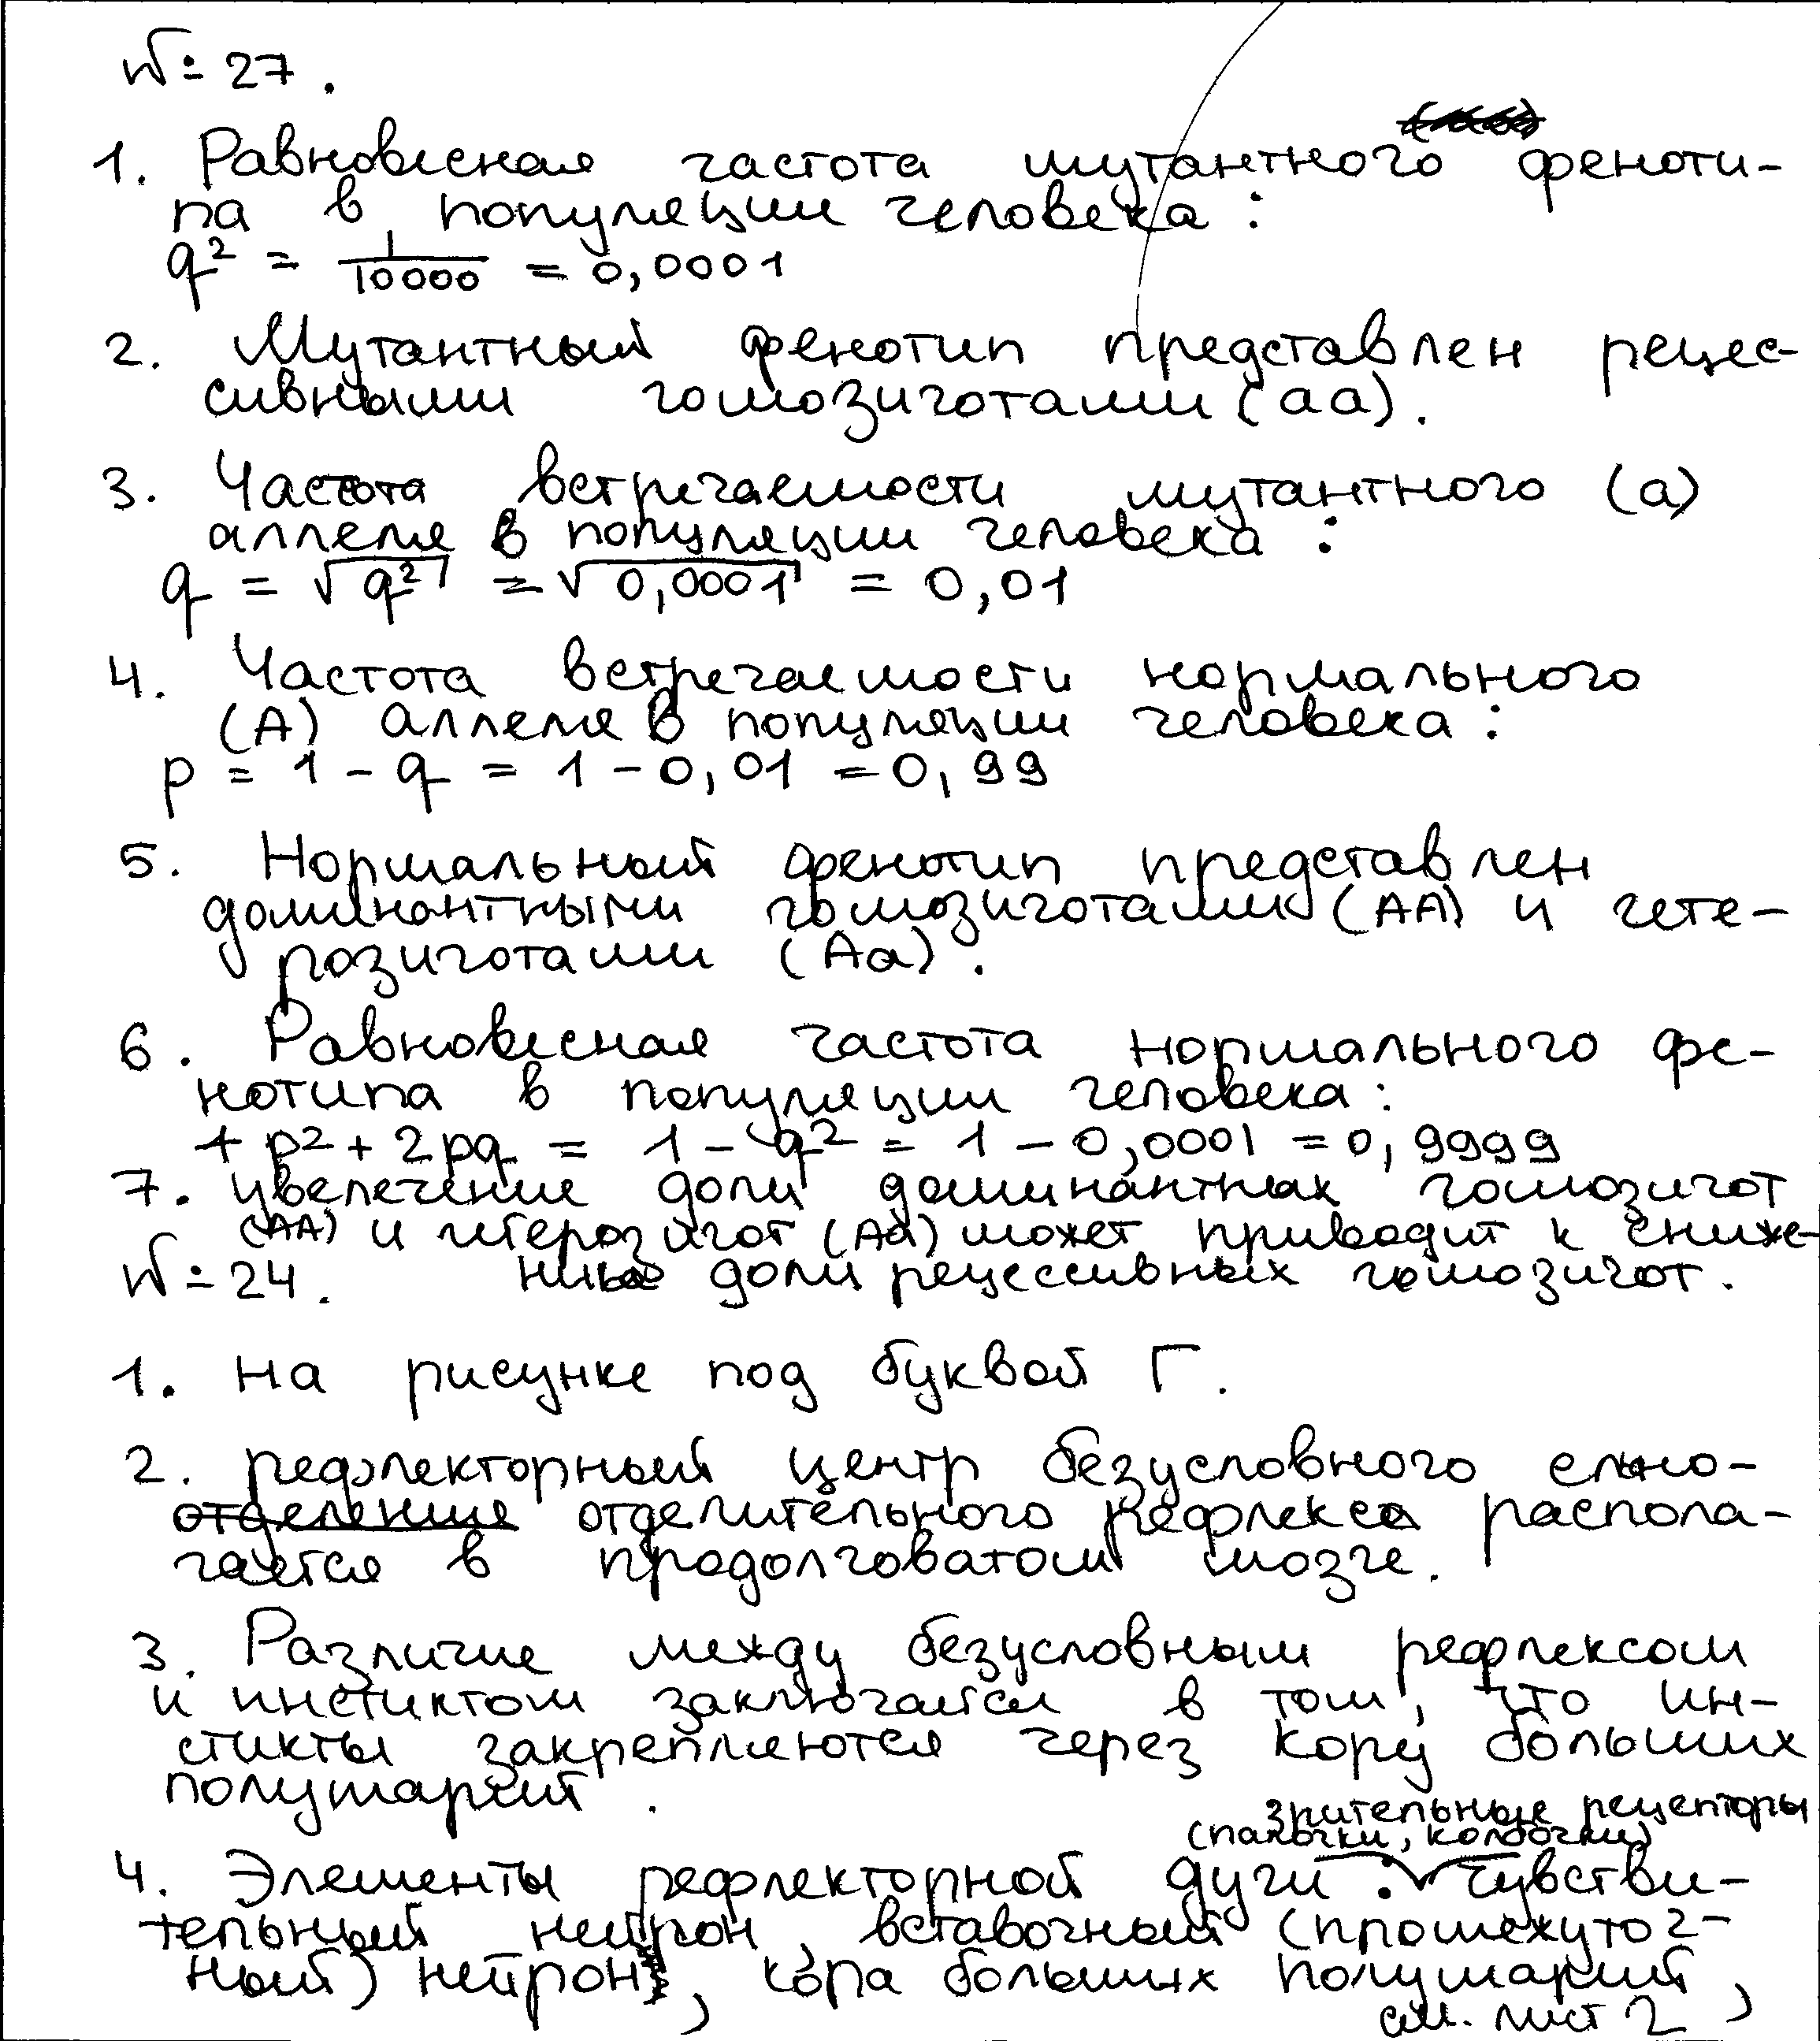 № 27.
1. Равновесная частота мутантного феноти-
па в популяции человека:
q² = 1/10000 = 0,0001
2. Мутантный фенотип представлен рецес-
сивными гомозиготами (аа).
3. Частота встречаемости мутантного (а)
аллеля в популяции человека:
q = √q² = √0,0001 = 0,01
4. Частота встречаемости нормального
(А) аллеля в популяции человека:
p = 1 - q = 1 - 0,01 = 0,99
5. Нормальный фенотип представлен
доминантными гомозиготами (АА) и гете-
розиготами (Аа).
6. Равновесная частота нормального фе-
нотипа в популяции человека:
+ p² + 2pq = 1 - q² = 1 - 0,0001 = 0,9999
7. увеличение доли доминантных гомозигот
(АА) и гетерозигот (Аа) может приводит к сниже-
нию доли рецессивных гомозигот.
№ 24.
1. На рисунке под буквой Г.
2. рефлекторный центр безусловного слюно-
отделение отделительного рефлекса распола-
гается в продолговатом мозге.
3. Различие между безусловным рефлексом
и инстиктом заключается в том, что ин-
стикты закрепляются через кору больших
полушарий.
зрительные рецепторы
(палочки, колбочки)
4. Элементы рефлекторной дуги: чувстви-
тельный нейрон, вставочный (промежуточ-
ный) нейрон, кора больших полушарий,
см. лист 2